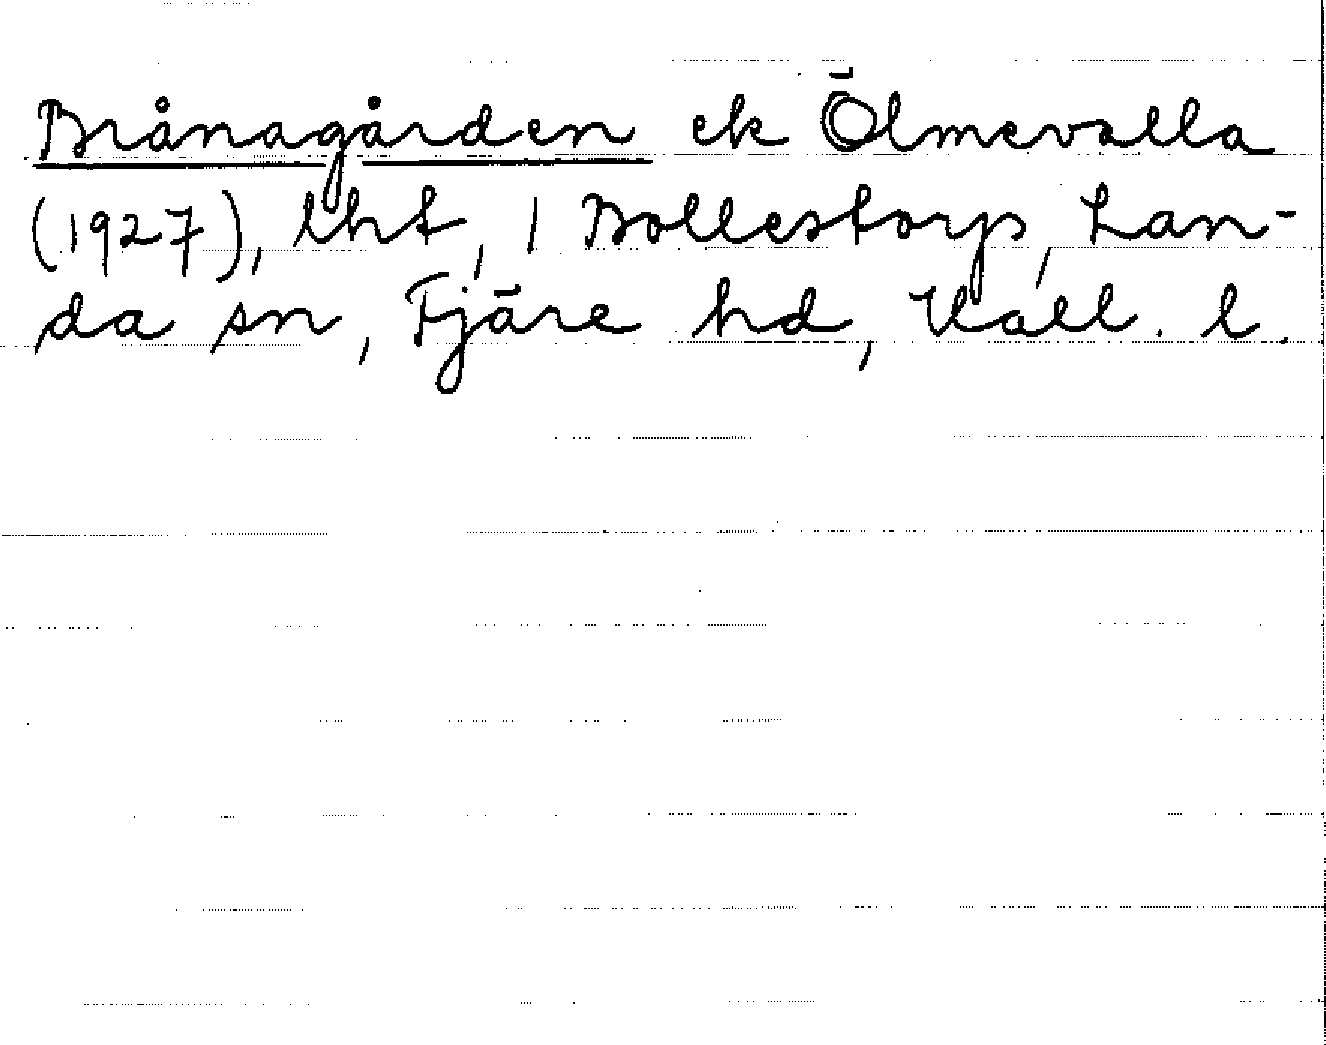 Brånagården ek Ölmevalla
(1927), lht, 1 Bollestorp, Lan-
da sn, Fjäre hd, Hall. l.